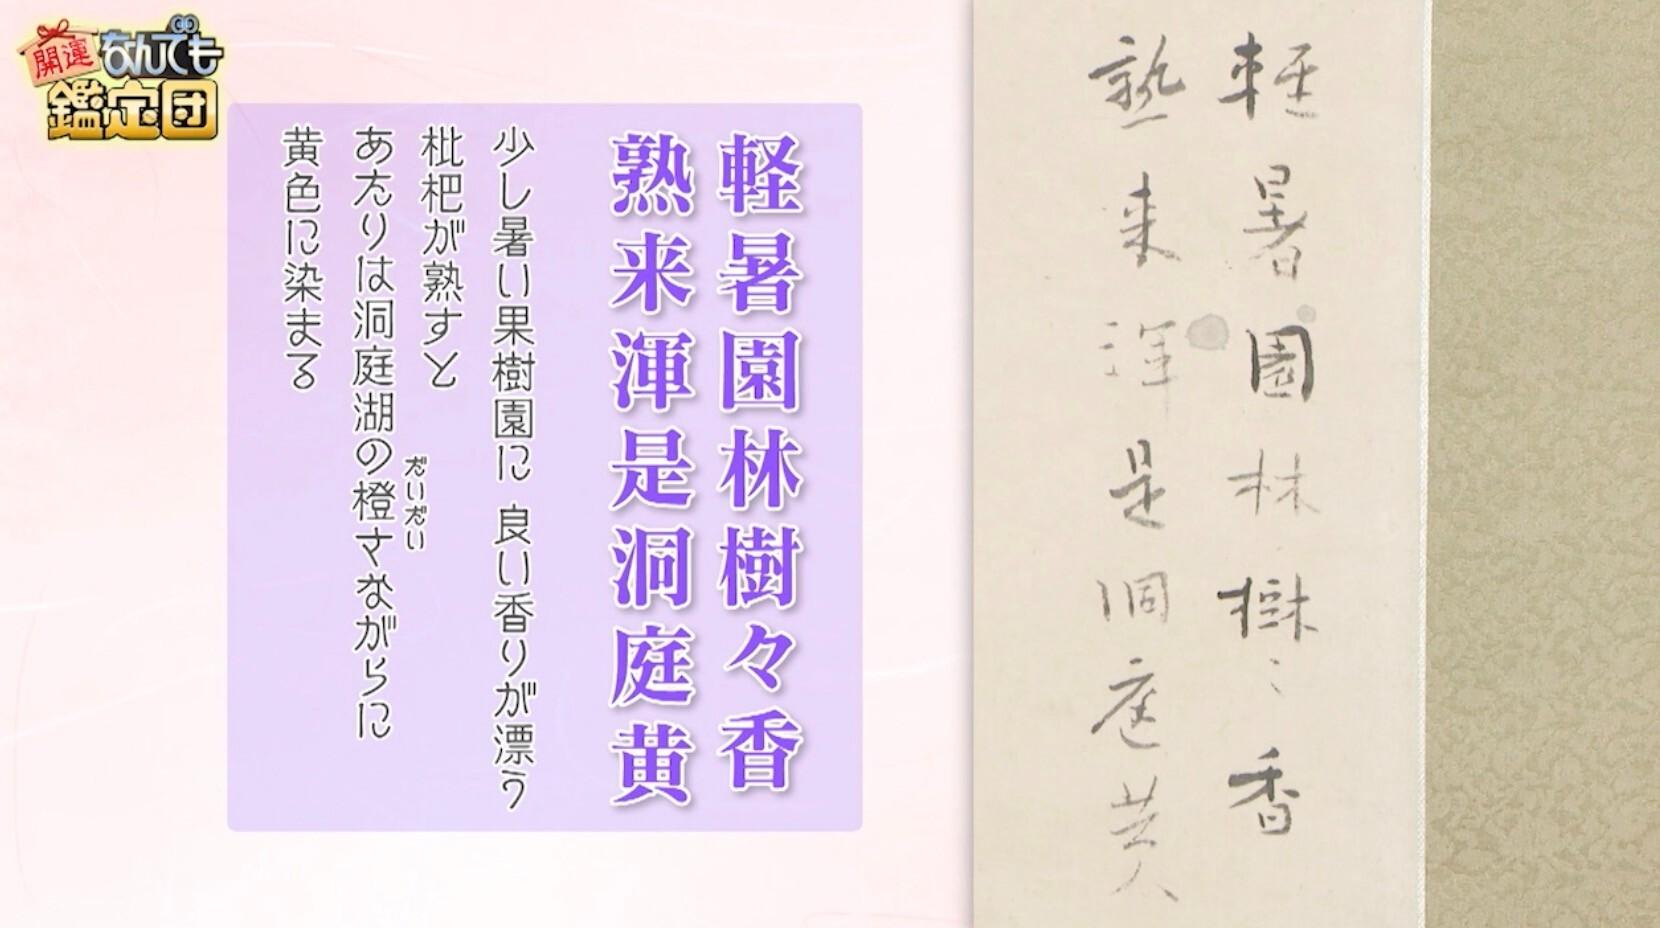 開運
なんでも
鑑定団
軽暑園林樹々香
熟来渾是洞庭黄
少し暑い果樹園に 良い香りが漂う
枇杷が熟すと
あたりは洞庭湖の橙さながらに
だいだい
黄色に染まる
軽暑園林樹〻香
熟来渾是洞庭黄